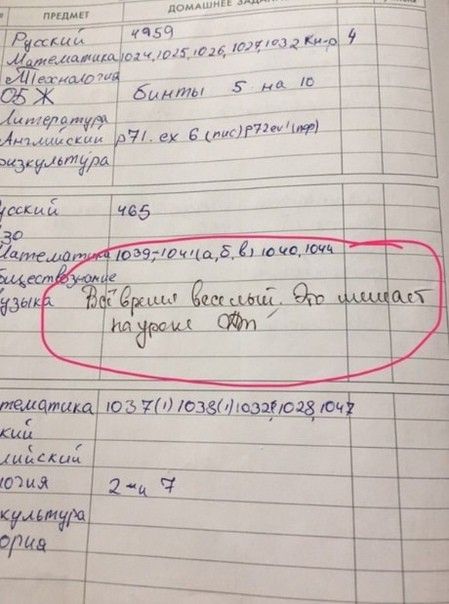 ПРЕДМЕТ ДОМАШНЕЕ ЗАДАН
Русский 4959
Математика 1024, 1025, 1026, 1027, 1032 кн-р 4
Технология
ОБЖ бинты 5 на 10
Литература
Английский р71. ex 6 (пис) р72
физкультура
усский 465
ИЗО
Математика 1039, 1041(а, б, в) 1040, 1044
бществознание
узыка Всё время веселый. Это мешает
на уроке
тематика 1037(1) 1038(1) 1032, 1028, 1047
кий
лийский
логия 7
культура
ория